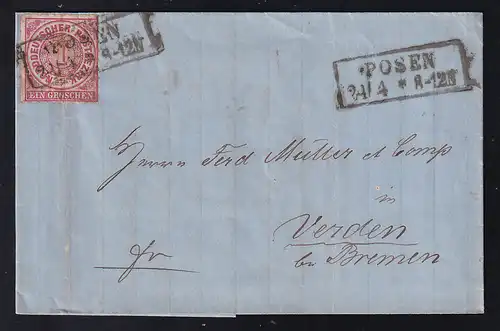 NORDDEUTSCHER POSTBEZIRK
1
EIN GROSCHEN
POSEN
8-12N
POSEN
24 4 * 8-12N
Herrn Ferd Müller & Comp
in
Verden
bei Bremen
fr